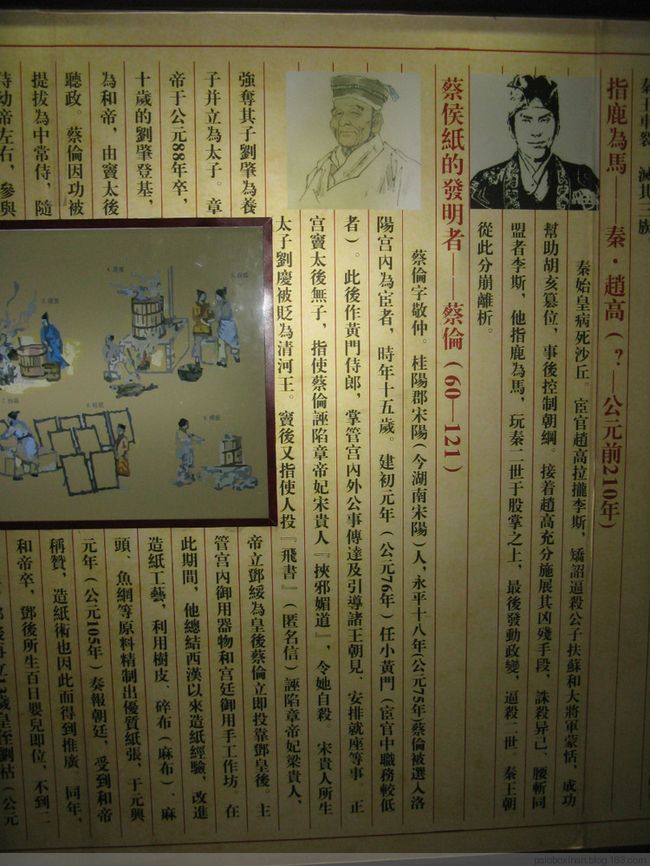 秦王車裂 滅其三族
指鹿為馬 秦·趙高（？—公元前210年）
秦始皇病死沙丘。宦官趙高拉攏李斯，矯詔逼殺公子扶蘇和大將軍蒙恬、成功
幫助胡亥篡位，事後控制朝綱。接着趙高充分施展其凶殘手段，誅殺异己、腰斬同
盟者李斯，他指鹿為馬，玩秦二世于股掌之上，最後發動政變，逼殺二世 秦王朝
從此分崩離析。
蔡侯紙的發明者——蔡倫（60—121）
蔡倫字敬仲。桂陽郡宋陽（今湖南宋陽）人，永平十八年公元75年）蔡倫被選入洛
陽宮內為宦者，時年十五歲。建初元年（公元76年）任小黃門（宦官中職務較低
者）。此後作黃門侍郎，掌管宮內外公事傳達及引導諸王朝見、安排就座等事 正
宮竇太後無子，指使蔡倫誣陷章帝妃宋貴人『挾邪媚道』，令她自殺 宋貴人所生
太子劉慶被貶為清河王。竇後又指使人投『飛書』（匿名信）誣陷章帝妃梁貴人，
強奪其子劉肇為養
子并立為太子。章
帝于公元88年卒，
十歲的劉肇登基，
為和帝，由竇太後
聽政。蔡倫因功被
提拔為中常侍，隨
侍幼帝左右，參與
帝立鄧綏為皇後蔡倫立即投靠鄧皇後。主
管宮內御用器物和宮廷御用手工作坊。在
此期間，他總結西漢以來造紙經驗，改進
造紙工藝，利用樹皮、碎布（麻布）、麻
頭、魚網等原料精制出優質紙張，于元興
元年（公元105年）奏報朝廷，受到和帝
稱贊，造紙術也因此而得到推廣。同年，
和帝卒，鄧後所生百日嬰兒即位，不到二
歲皇侄劉祜（公元
psioboxinan.blog.163.com